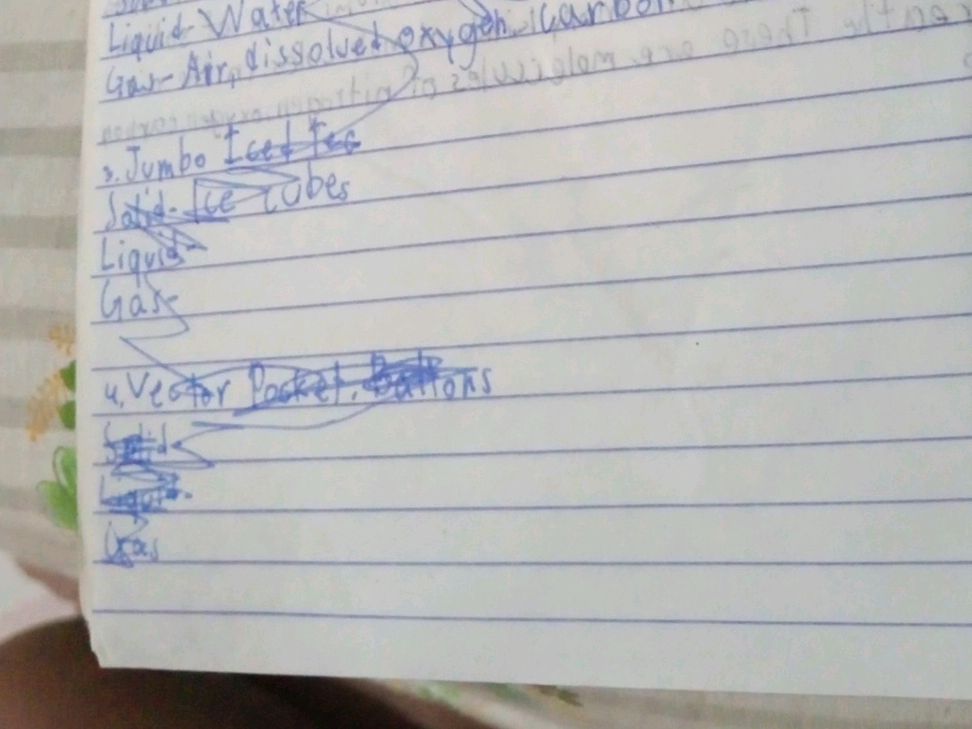 Liquid-Water
Gas-Air, dissolved oxygen, (carbon
3. Jumbo Iced Tea
Solid-Ice Cubes
Liquid-
Gas-
4. Vector Pocket.
Solid-
Liquid-
Gas